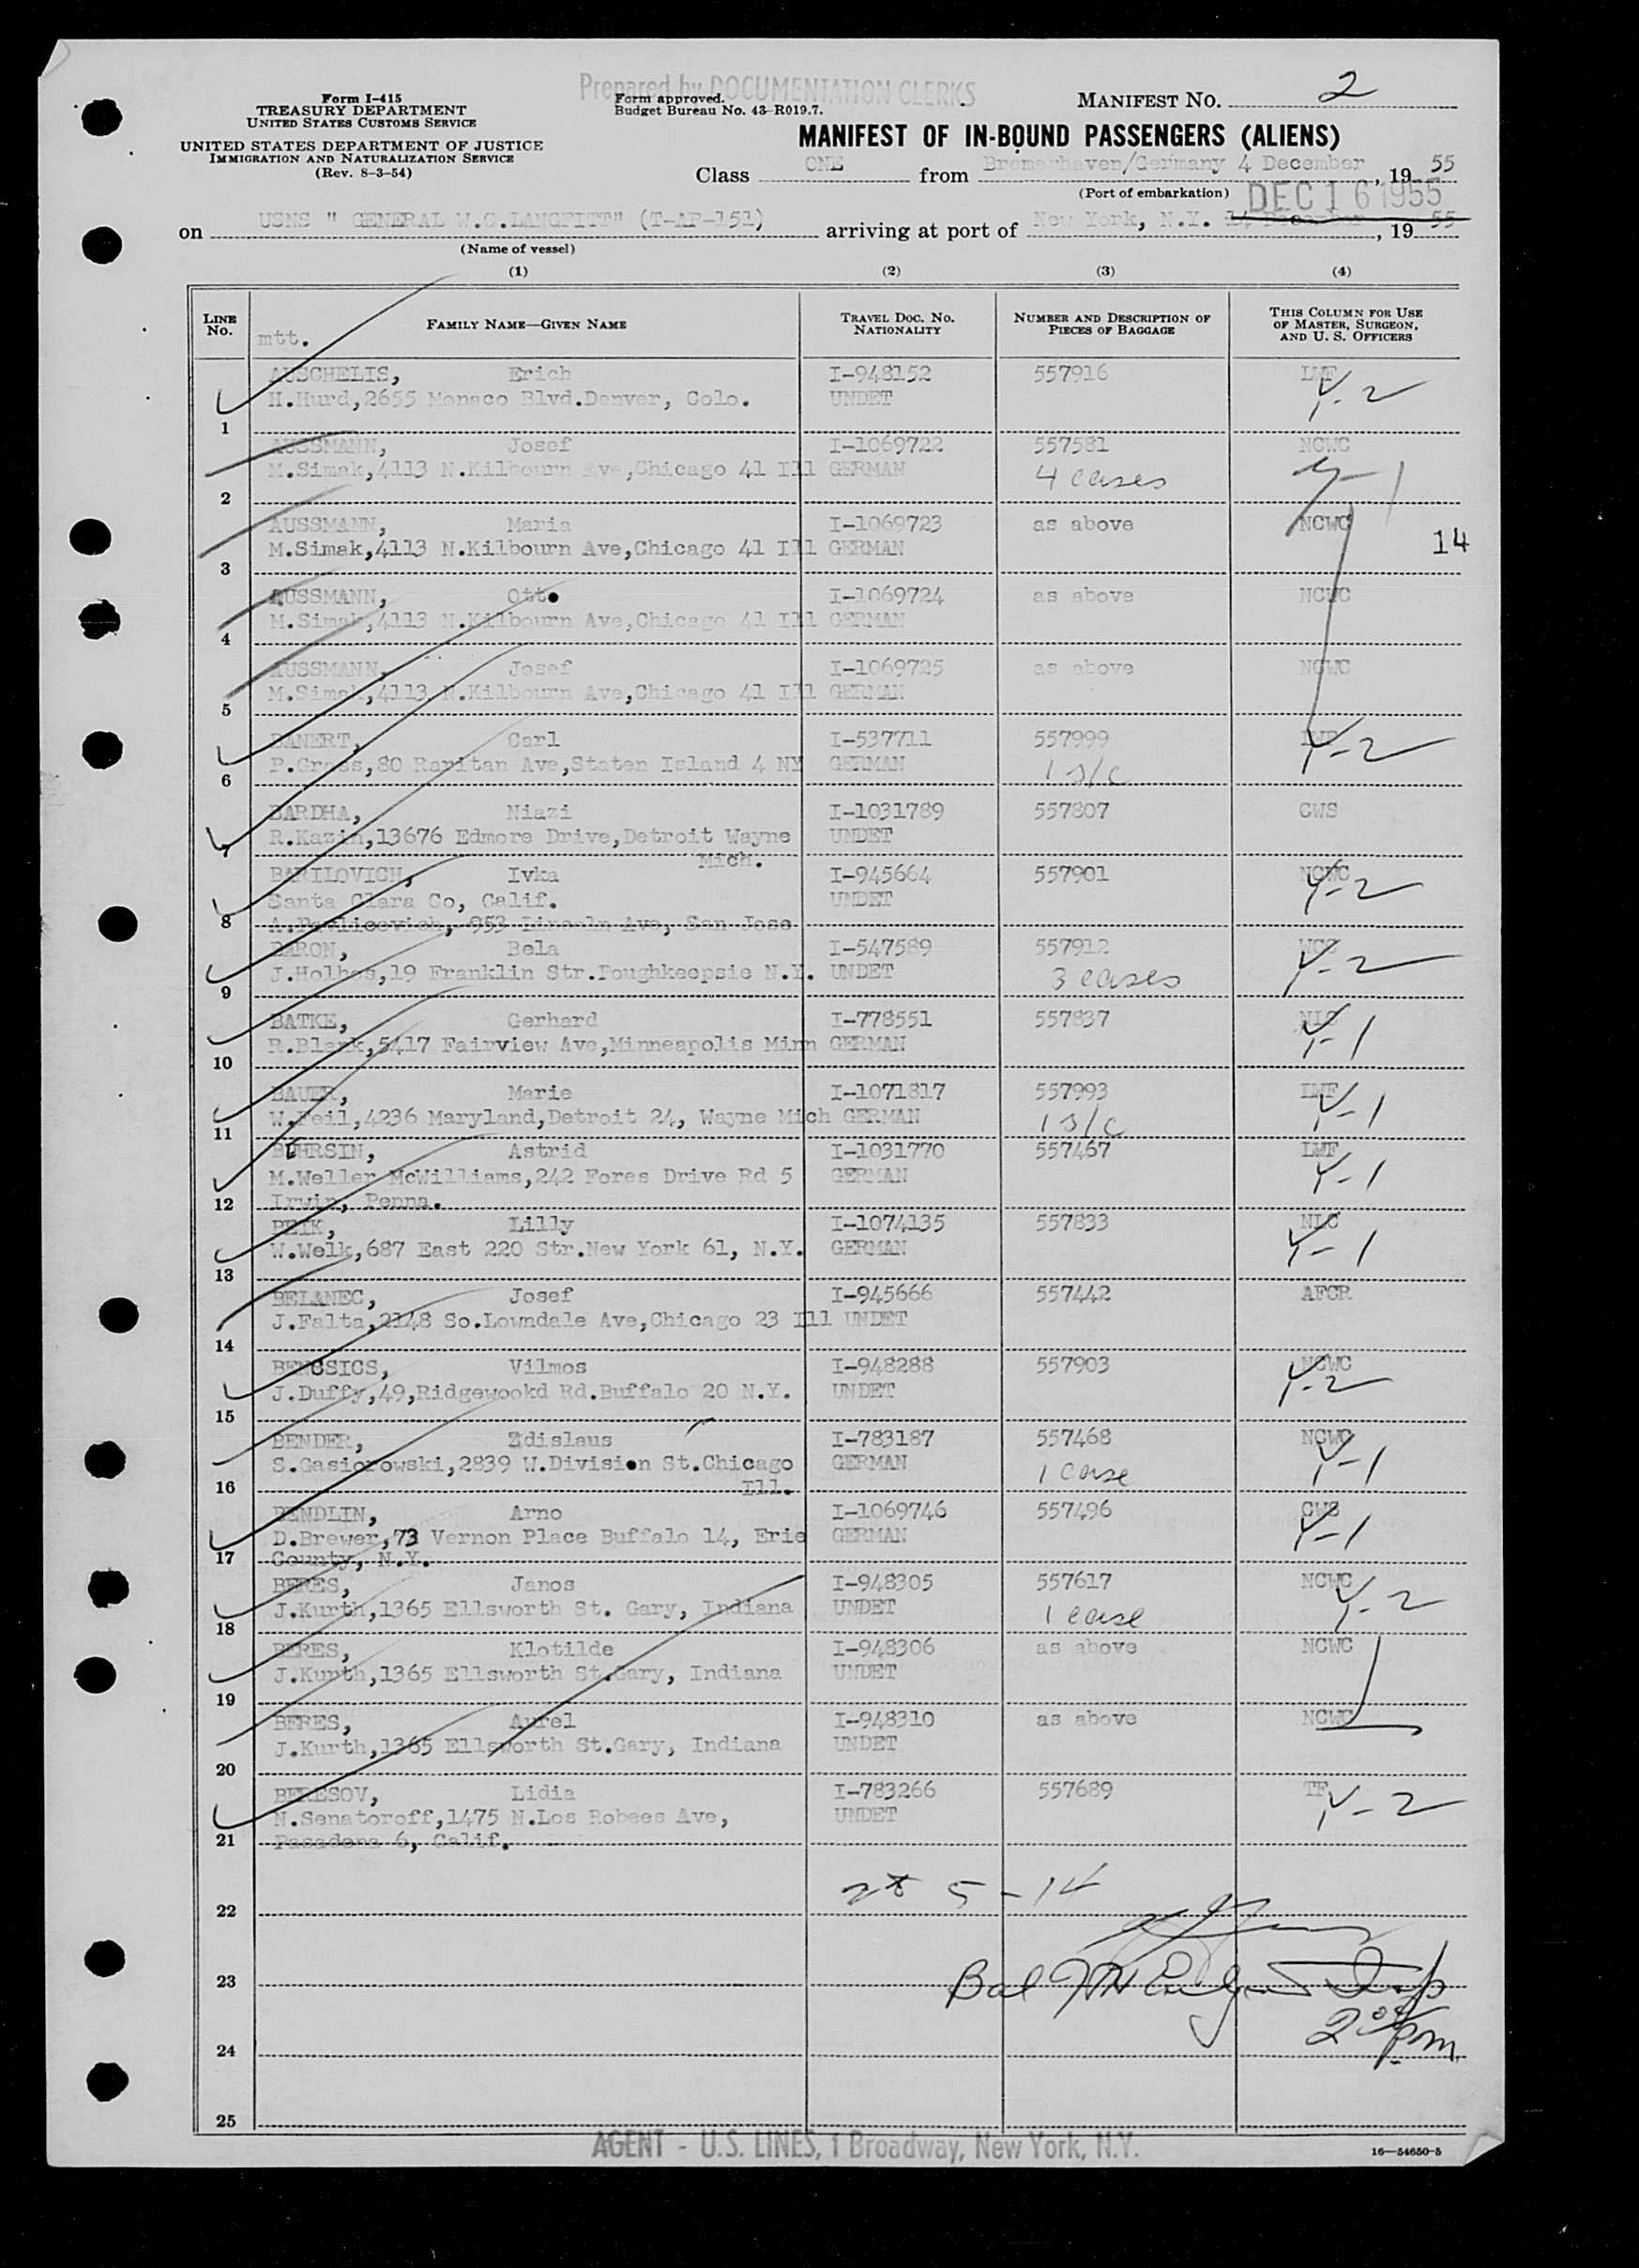 Prepared by DOCUMENTATION CLERKS
Form I-415
TREASURY DEPARTMENT
UNITED STATES CUSTOMS SERVICE
UNITED STATES DEPARTMENT OF JUSTICE
IMMIGRATION AND NATURALIZATION SERVICE
(Rev. 8-3-54)
Form approved.
Budget Bureau No. 43-R019.7.
MANIFEST NO. 2
MANIFEST OF IN-BOUND PASSENGERS (ALIENS)
Class ONE from Bremerhaven/Germany 4 December, 19 55
(Port of embarkation)
DEC 16 1955
on USNS " GENERAL W.C.LANGFITT" (T-AP-151) arriving at port of New York, N.Y. 14 December, 19 55
(Name of vessel)
(1) (2) (3) (4)
LINE NO. FAMILY NAME—GIVEN NAME TRAVEL DOC. NO. NATIONALITY NUMBER AND DESCRIPTION OF PIECES OF BAGGAGE THIS COLUMN FOR USE OF MASTER, SURGEON, AND U. S. OFFICERS
mtt.
AUSCHELIS, Erich I-948152 557916 LWF
H.Hurd,2655 Monaco Blvd.Denver, Colo. UNDET Y-2
1
AUSSMANN, Josef I-1069722 557581 NCWC
M.Simak,4113 N.Kilbourn Ave,Chicago 41 Ill GERMAN 4 cases Y-1
2
AUSSMANN, Maria I-1069723 as above NCWC
M.Simak,4113 N.Kilbourn Ave,Chicago 41 Ill GERMAN 14
3
AUSSMANN, Otto I-1069724 as above NCWC
M.Simak,4113 N.Kilbourn Ave,Chicago 41 Ill GERMAN
4
AUSSMANN, Josef I-1069725 as above NCWC
M.Simak,4113 N.Kilbourn Ave,Chicago 41 Ill GERMAN
5
BANERT, Carl I-537711 557999 LWF
P.Grass,80 Raritan Ave,Staten Island 4 NY GERMAN 1 s/c Y-2
6
BARDHA, Niazi I-1031789 557807 CWS
R.Kazin,13676 Edmore Drive,Detroit Wayne UNDET
7 Mich.
BARILOVICH, Ivka I-945664 557901 NCWC
Santa Clara Co, Calif. UNDET Y-2
8 953 Lincoln Ave, San Jose
BARON, Bela I-547589 557912
J.Holbes,19 Franklin Str.Poughkeepsie N.Y. UNDET 3 cases Y-2
9
BATKE, Gerhard I-778551 557837 NLC
R.Blank,5417 Fairview Ave,Minneapolis Minn GERMAN Y-1
10
BAUER, Marie I-1071817 557993 LWF
W.Feil,4236 Maryland,Detroit 24, Wayne Mich GERMAN 1 s/c Y-1
11
BEHRSIN, Astrid I-1031770 557467 LWF
M.Weller McWilliams,242 Fores Drive Rd 5 GERMAN Y-1
12 Irwin, Penna.
BEIK, Lilly I-1074135 557833 NLC
W.Welk,687 East 220 Str.New York 61, N.Y. GERMAN Y-1
13
BELANEC, Josef I-945666 557442 AFCR
J.Falta,2148 So.Lowndale Ave,Chicago 23 Ill UNDET
14
BENCSICS, Vilmos I-948288 557903 NCWC
J.Duffy,49,Ridgewookd Rd.Buffalo 20 N.Y. UNDET Y-2
15
BENDER, Zdislaus I-783187 557468 NCWC
S.Gasiorowski,2839 W.Division St.Chicago GERMAN 1 case Y-1
16 Ill.
BENDLIN, Arno I-1069746 557496 CWS
D.Brewer,73 Vernon Place Buffalo 14, Erie GERMAN Y-1
17 County, N.Y.
BERES, Janos I-948305 557617 NCWC
J.Kurth,1365 Ellsworth St. Gary, Indiana UNDET 1 case Y-2
18
BERES, Klotilde I-948306 as above NCWC
J.Kurth,1365 Ellsworth St.Gary, Indiana UNDET
19
BERES, Aurel I-948310 as above NCWC
J.Kurth,1365 Ellsworth St.Gary, Indiana UNDET
20
BERESOV, Lidia I-783266 557689 TF
N.Senatoroff,1475 N.Los Robees Ave, UNDET Y-2
21 Pasadena 6, Calif.
5-14
22
23 Bal
2 pm
24
25
AGENT - U.S. LINES, 1 Broadway, New York, N.Y.
16—54650-5